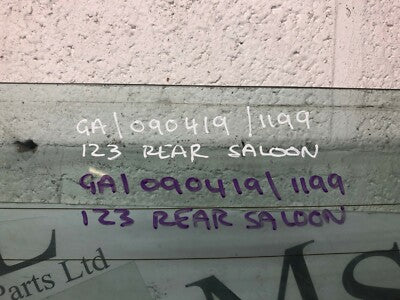 GA/090419/1199
123 REAR SALOON
GA/090419/1199
123 REAR SALOON
Parts Ltd
MS